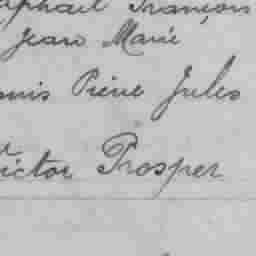 aphael François
Jean Marie
ouis Pierre Jules
ictor Prosper